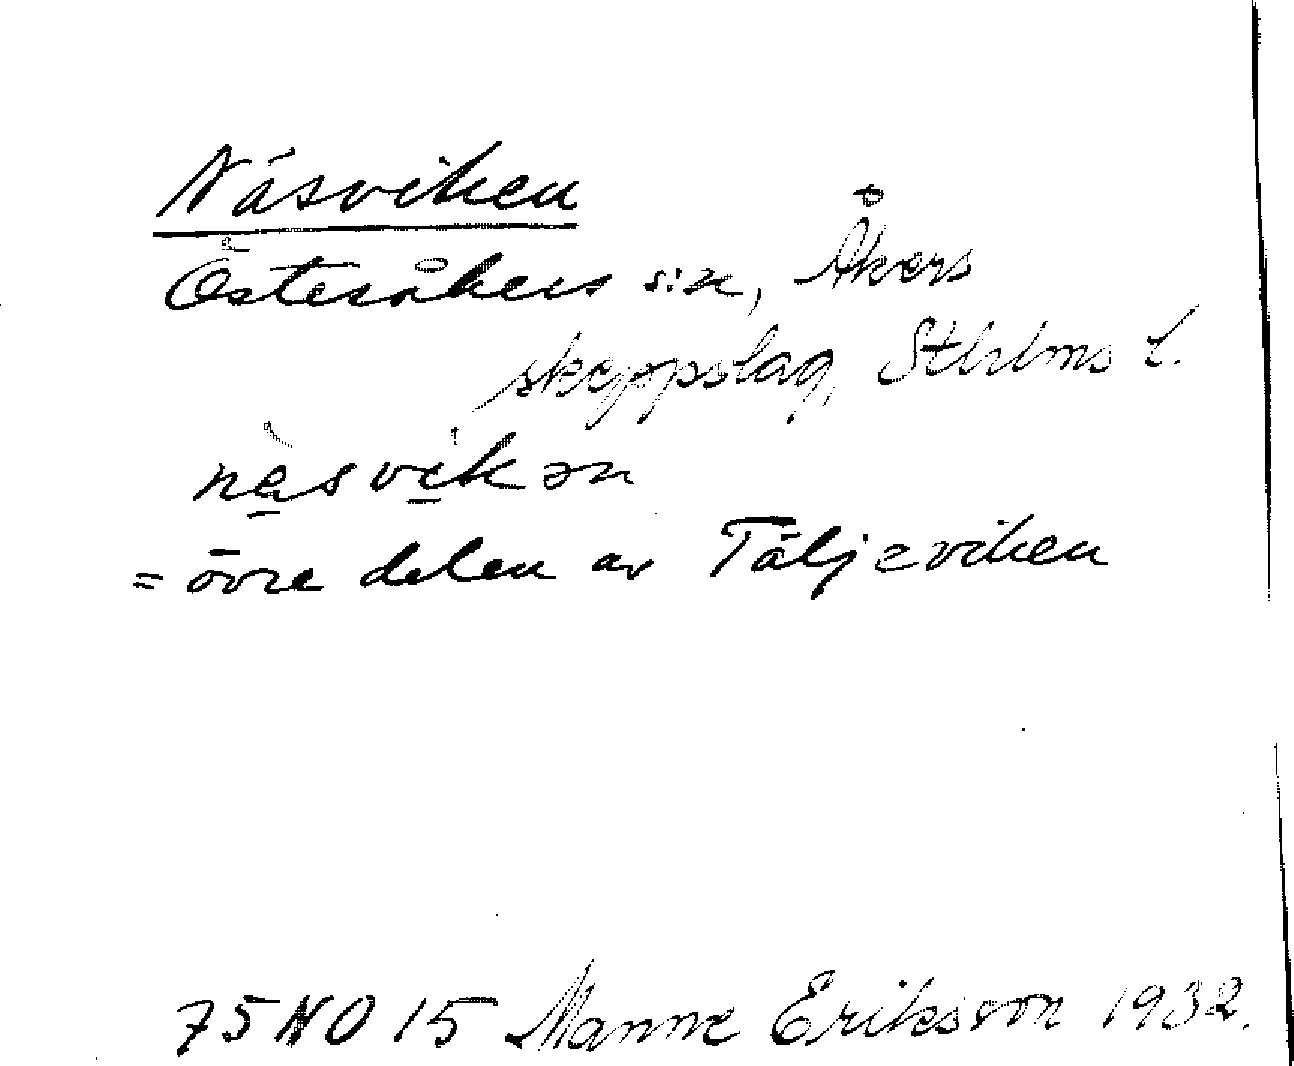 Näsviken
Österåkers sn, Åkers
skeppslag, Sthlms l.
nä̀svikən
= övre delen av Täljeviken
75 NO 15 Manne Eriksson 1932.